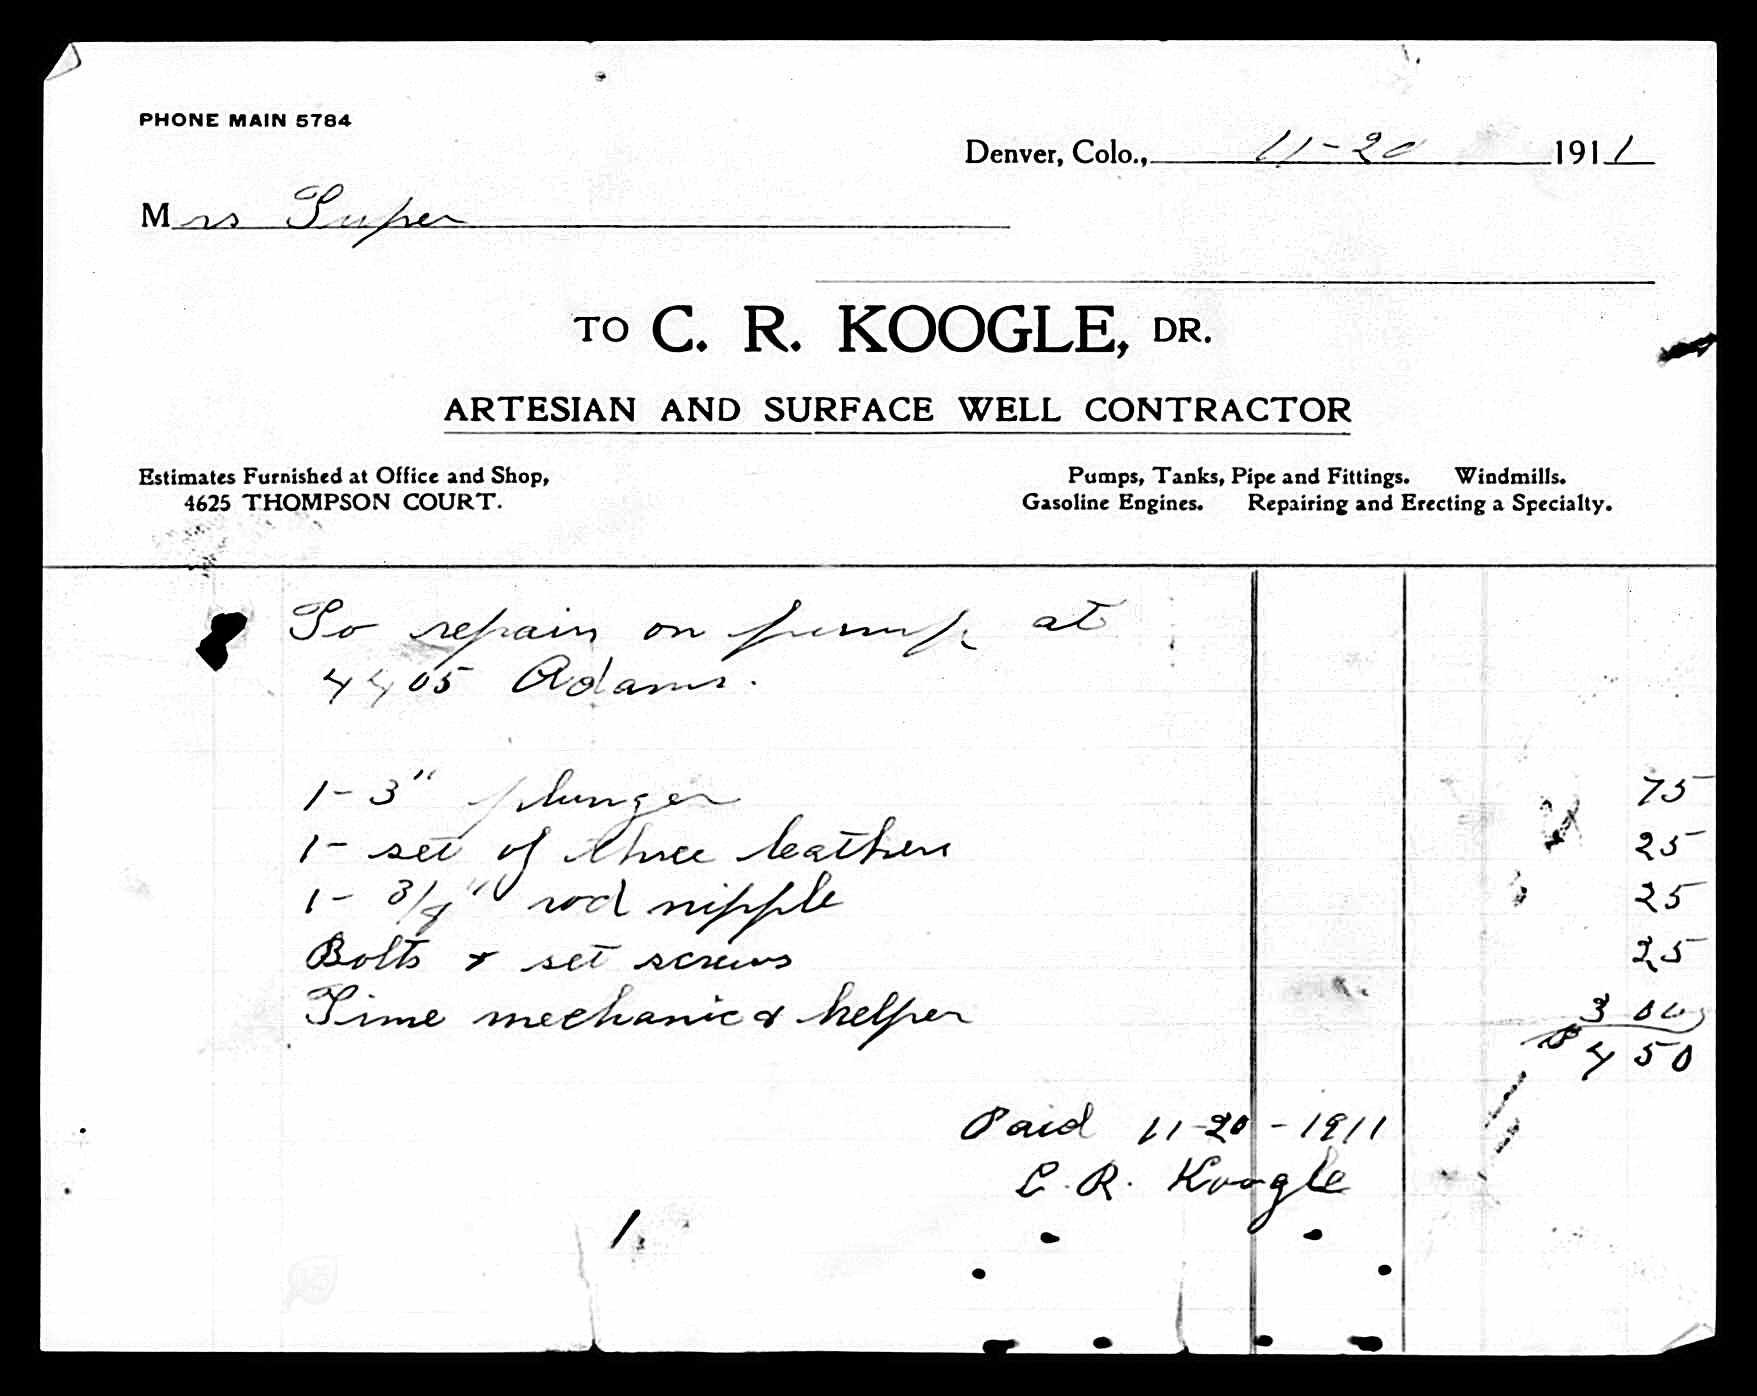 PHONE MAIN 5784
Denver, Colo., 11-20 1911
Mrs Super
TO C. R. KOOGLE, DR.
ARTESIAN AND SURFACE WELL CONTRACTOR
Estimates Furnished at Office and Shop,
4625 THOMPSON COURT.
Pumps, Tanks, Pipe and Fittings. Windmills.
Gasoline Engines. Repairing and Erecting a Specialty.
To repairs on pump at
4405 Adams.
1-3" plunger 75
1- set of three leathers 25
1- 3/4" rod nipple 25
Bolts & set screws 25
Time mechanic & helper 3 00
$ 4 50
Paid 11-20-1911
C. R. Koogle